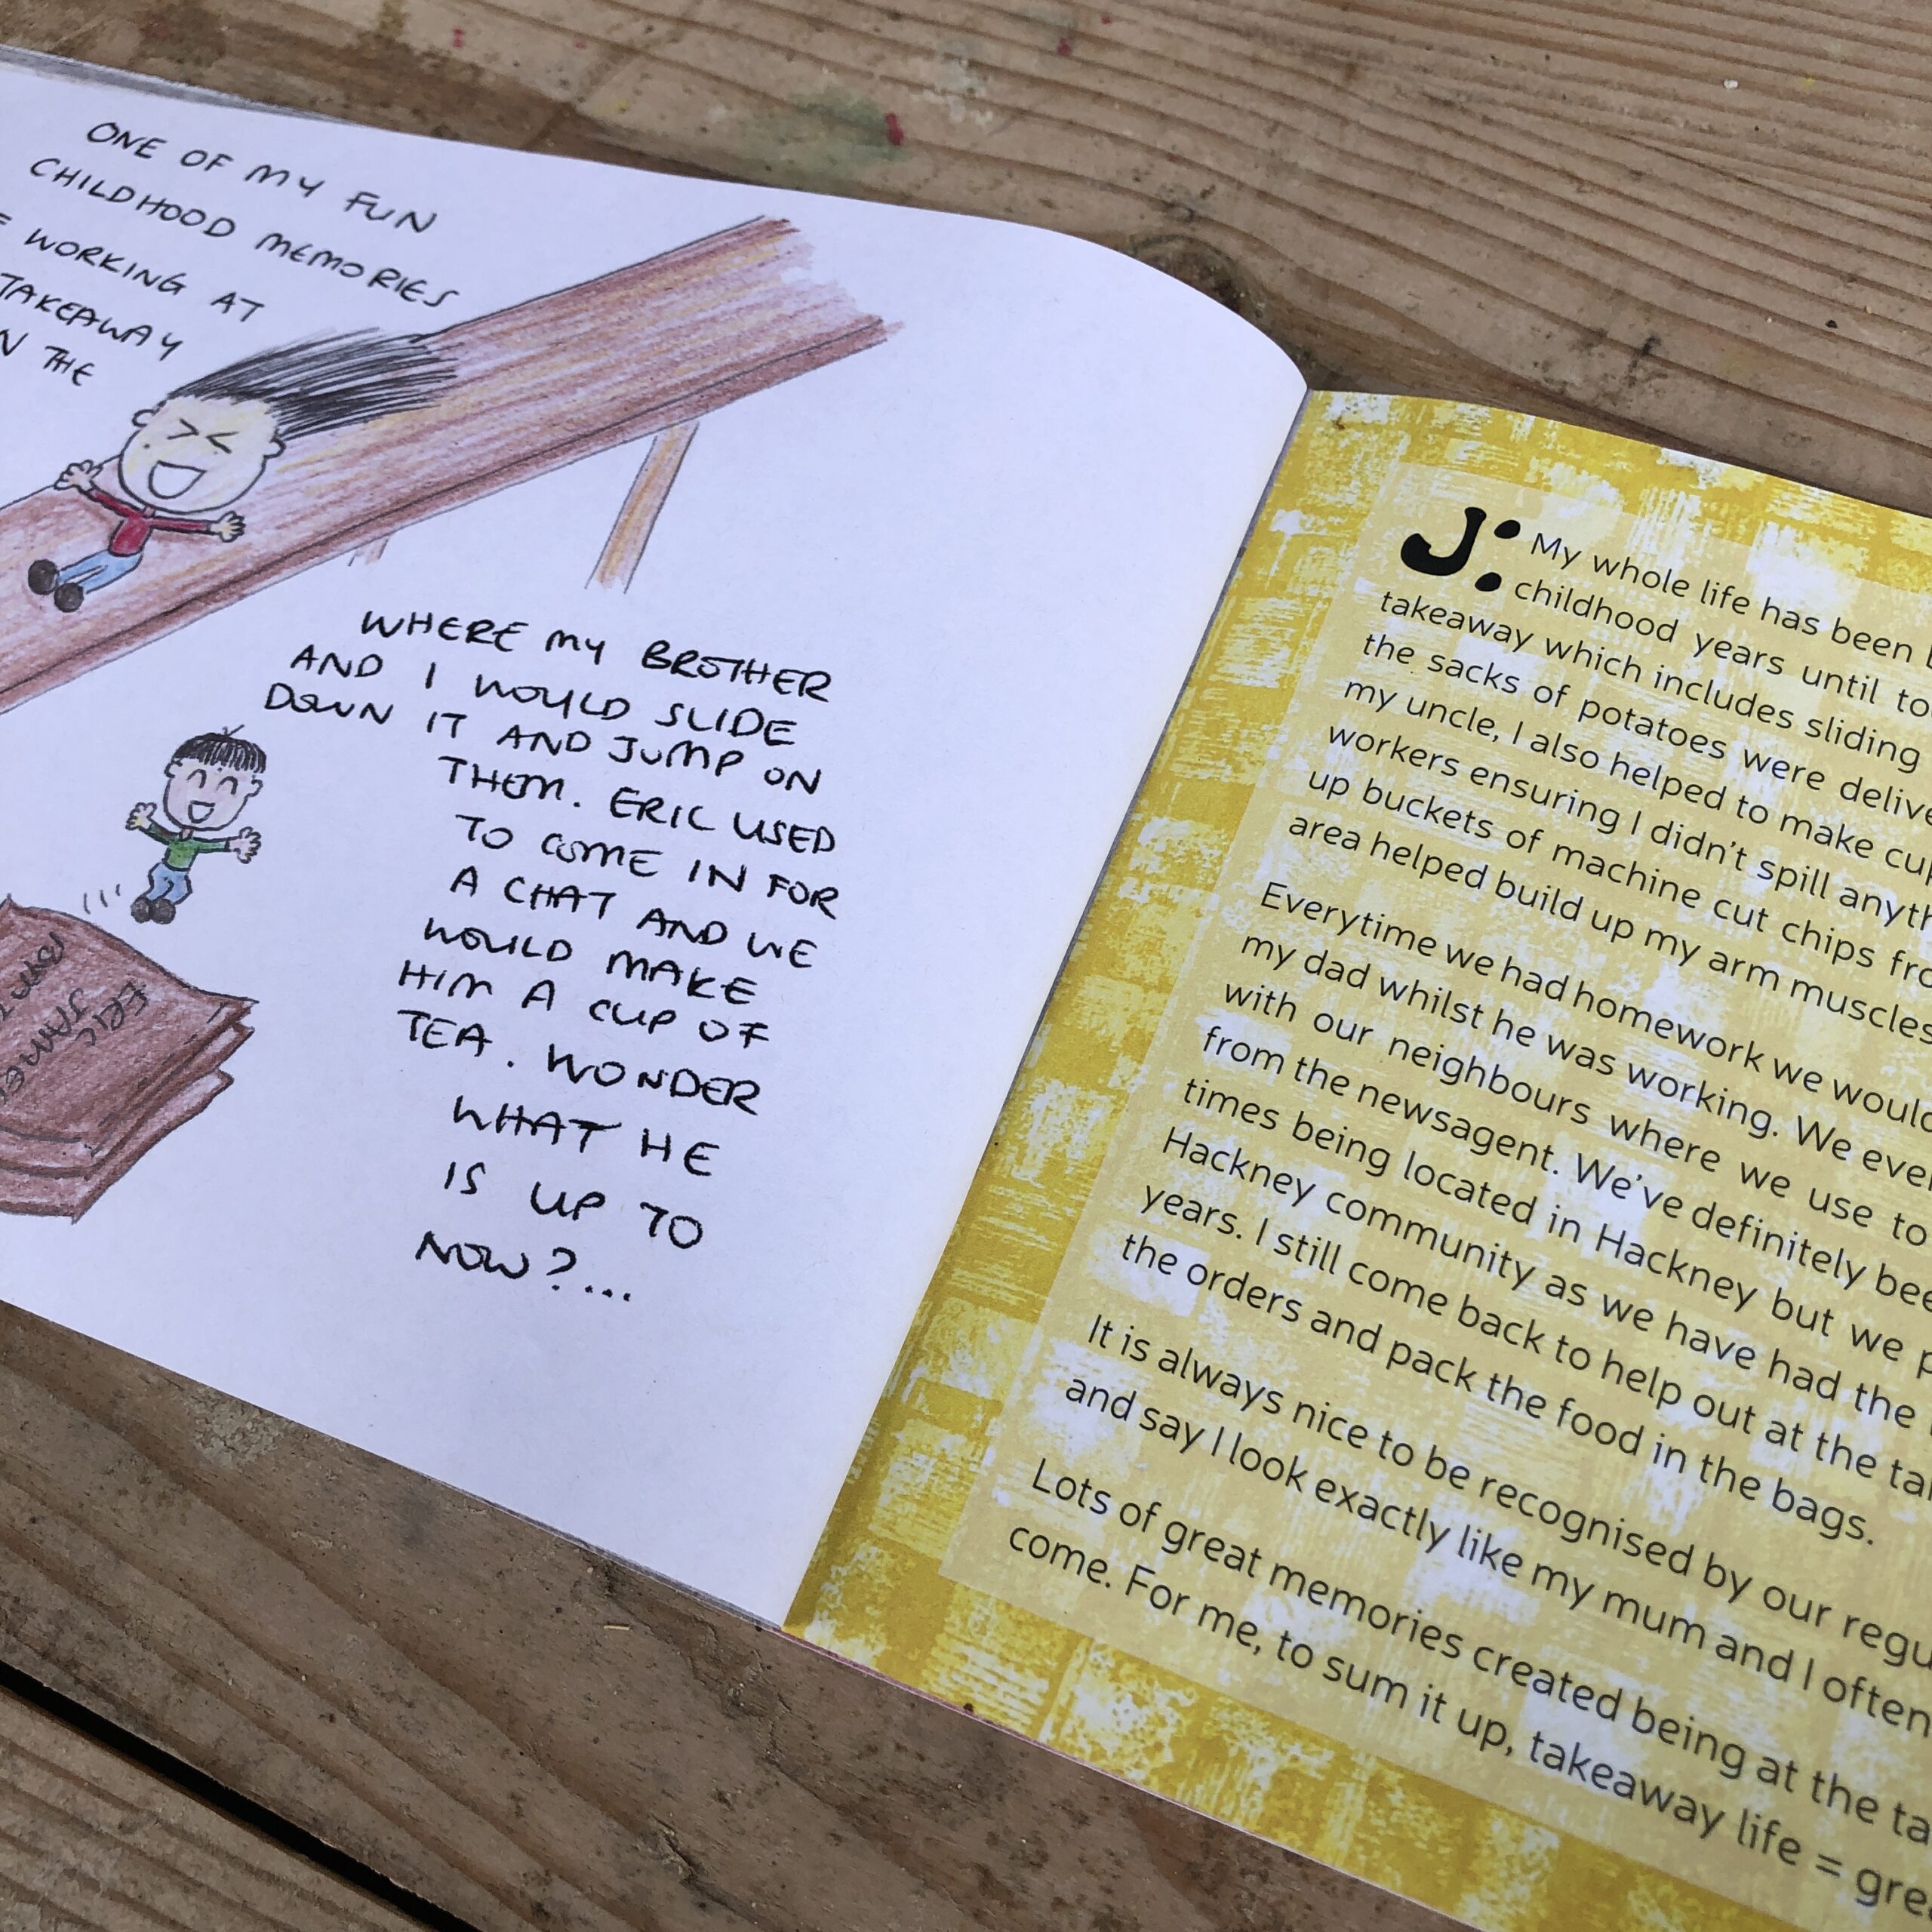 ONE OF MY FUN
CHILDHOOD MEMORIES
WORKING AT
TAKEAWAY
THE
WHERE MY BROTHER
AND I WOULD SLIDE
DOWN IT AND JUMP ON
THEM. ERIC USED
TO COME IN FOR
A CHAT AND WE
WOULD MAKE
HIM A CUP OF
TEA. WONDER
WHAT HE
IS UP TO
NOW?...
ERIC
J: My whole life has been
childhood years until
takeaway which includes sliding
the sacks of potatoes were
my uncle, I also helped to make
workers ensuring I didn't spill
up buckets of machine cut chips
area helped build up my arm muscles
Everytime we had homework we
my dad whilst he was working. We
with our neighbours where we use to
from the newsagent. We've definitely
times being located in Hackney but we
Hackney community as we have had the
years. I still come back to help out at the
the orders and pack the food in the bags.
It is always nice to be recognised by our
and say I look exactly like my mum and I often
Lots of great memories created being at the
come. For me, to sum it up, takeaway life =